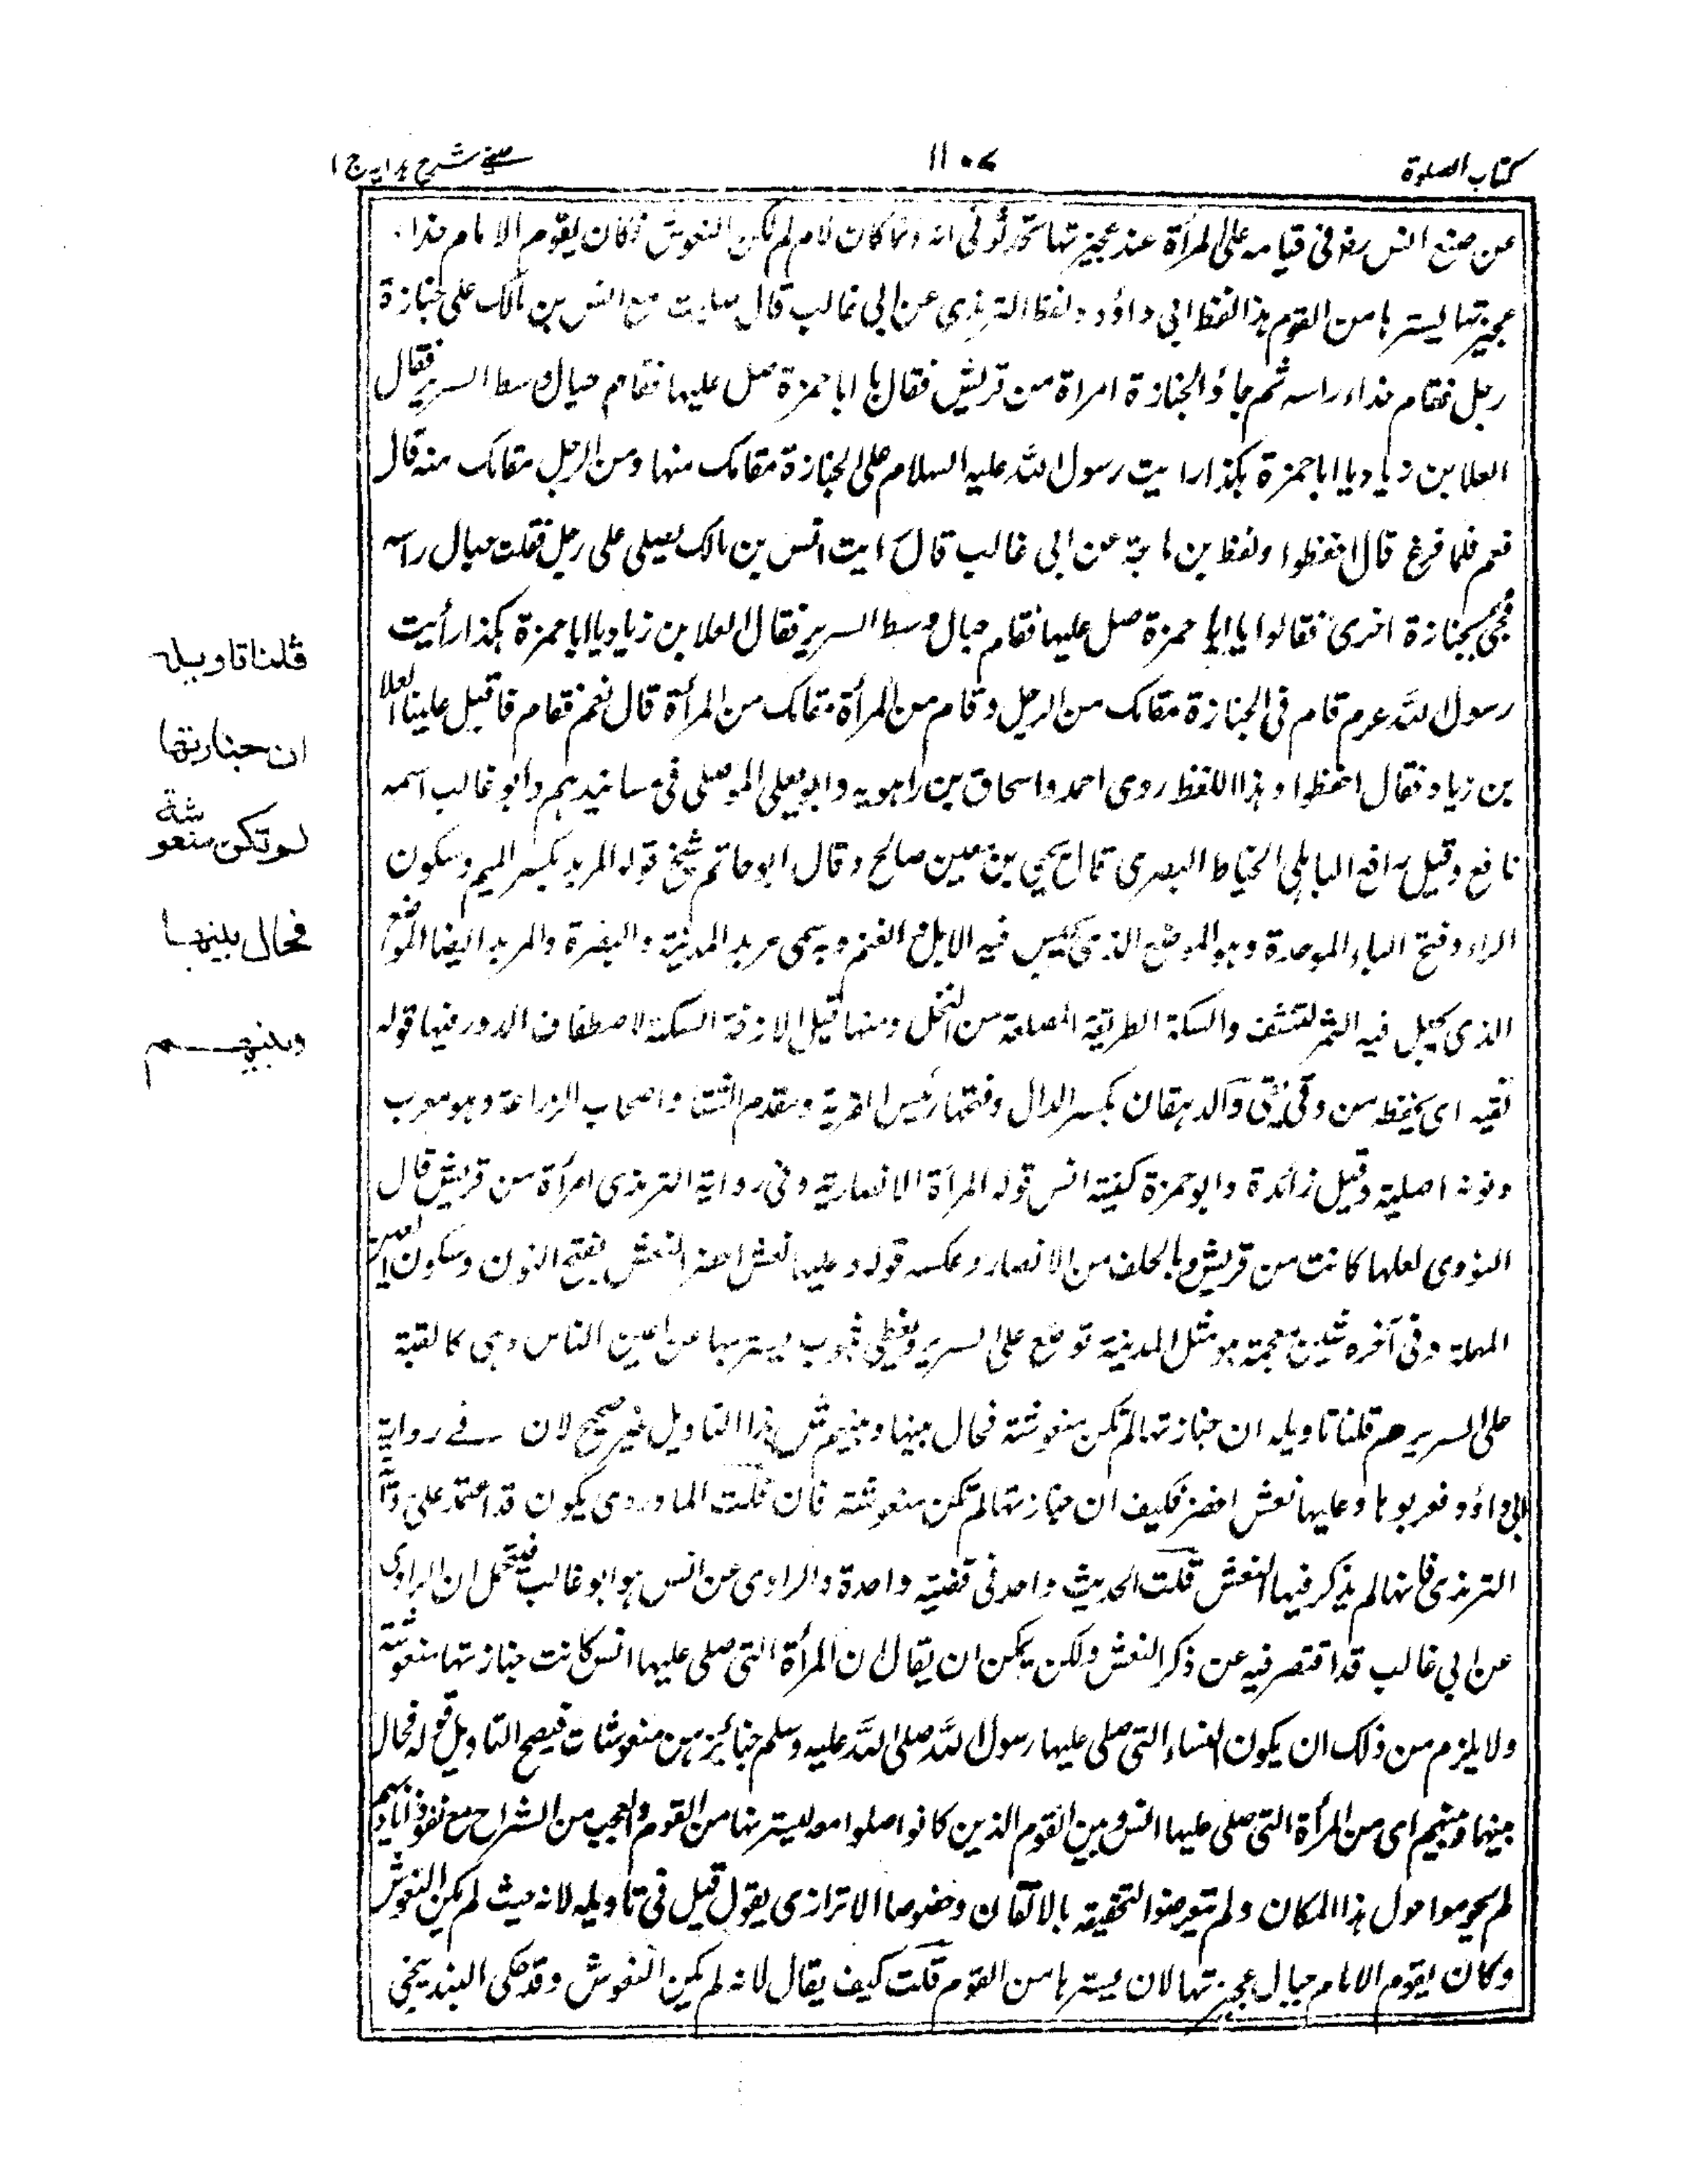 كتاب الصلوة
١١٠٧
عينى شرح هدايه ج ١
عن صنع انس رض فى قيامه على المرأة عند عجيزتها فحدثونى انه انما كان لانه لم تكن النعوش فكان يقوم الامام حذاء
عجيزتها يسترها من القوم هذا لفظ ابى داؤد ولفظ الترمذى عن ابى غالب قال صليت مع انس بن مالك على جنازة
رجل فقام حذاء راسه ثم جاؤا بجنازة امراة من قريش فقال يا ابا حمزة صل عليها فقام حيال وسط السرير فقال
العلا بن زياد يا ابا حمزة هكذا رايت رسول الله عليه السلام على الجنازة مقامك منها ومن الرجل مقامك منه قال
نعم فلما فرغ قال احفظوا ولفظ بن ماجة عن ابى غالب قال رايت انس بن مالك يصلى على رجل فقلت حيال راسه
فجئ بجنازة اخرى فقالوا يا ابا حمزة صل عليها فقام حيال وسط السرير فقال العلا بن زياد يا ابا حمزة هكذا رأيت
رسول الله عرم قام فى الجنازة مقامك من الرجل وقام من المرأة مقامك من المرأة قال نعم فقام فاقبل علينا العلا
بن زياد فقال احفظوا وبهذا اللفظ روى احمد واسحاق بن راهويه وابو يعلى الموصلى فى مسانيدهم وابو غالب اسمه
نافع وقيل رافع الباهلى الخياط البصرى قال يحيى بن معين صالح وقال ابو حاتم شيخ قوله المربد بكسر الميم وسكون
الراء وفتح الباء الموحدة وهو الموضع الذى يحبس فيه الابل والغنم وبه سمى مربد المدينة والبصرة والمربد ايضا الموضع
الذى يجعل فيه التمر لتنشف والسكة الطريقة المصلحة من النخل ومنها قيل الازقة السكة لاصطفاف الدور فيها قوله
تقيه اى يحفظه من وقى يقى والدهقان بكسر الدال وفتحها رئيس القرية ومقدم التنا واصحاب الزراعة وهو معرب
ونونه اصلية وقيل زائدة وابو حمزة كنية انس قوله المرأة الانصارية وفى رواية الترمذى امرأة من قريش قال
النووى لعلها كانت من قريش وبالحلف من الانصار وعكسه قوله وعليها نعش اخضر النعش بفتح النون وسكون العين
المهملة وفى آخره شين معجمة هو مثل المدينة توضع على السرير ويغطى بثوب يسترها عن اعين الناس وهى كالقبة
على السرير هم قلنا تاويله ان جنازتها لم تكن منعوشة فحال بينها وبينهم ش هذا التاويل غير صحيح لان فى رواية
ابى داؤد فقربوها وعليها نعش اخضر فكيف ان جنازتها لم تكن منعوشة فان قلت الماوردى يكون قد اعتمد على رواية
الترمذى فانها لم يذكر فيها النعش قلت الحديث واحد فى قضية واحدة والراوى عن انس هو ابو غالب فيحتمل ان الراوى
عن ابى غالب قد اقتصر فيه عن ذكر النعش ولكن يمكن ان يقال ان المرأة التى صلى عليها انس كانت جنازتها منعوشة
ولا يلزم من ذلك ان يكون النساء التى صلى عليها رسول الله صلى الله عليه وسلم جنائزهن منعوشات فيصح التاويل قوله فحال
بينها وبينهم اى من المرأة التى صلى عليها انس وبين القوم الذين كانوا صلوا معه ليسترنها من القوم والعجب من الشراح مع نفوذ اياديهم
لم يحوموا حول هذا المكان ولم يتعرضوا لتحقيقه بالاتقان وخصوصا الاترازى يقول قيل فى تاويله لانه حيث لم يكن النعوش
وكان يقوم الامام حيال عجيزتها لان يسترها من القوم قلت كيف يقال لانه لم يكن النعوش وقد حكى البندنيجى
قلنا تاويله
ان جنازتها
لم تكن منعوشة
فحال بينها
وبينهم